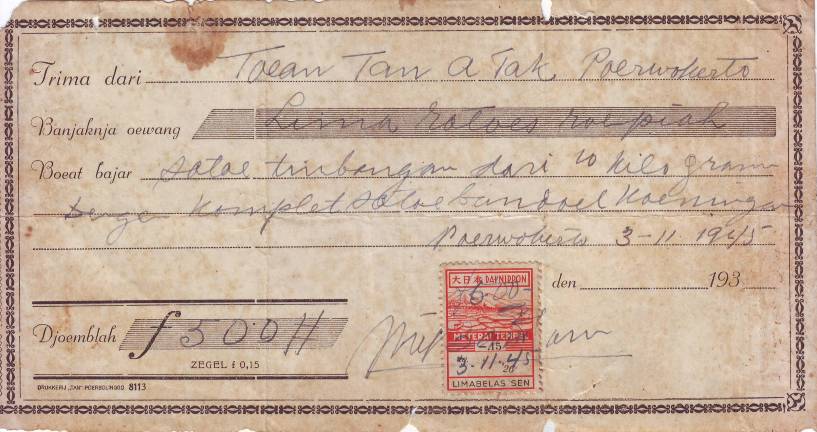 Trima dari Toean Tan A Tak Poerwokerto
Banjaknja oewang Lima ratoes roepiah
Boeat bajar satoe timbangan dari 10 kilogram
dengen komplet satoe bandoel Koeningan
Poerwokerto 3-11 1945
den 193
大日本 DAI NIPPON
METERAI TEMPEL
15
3-11-45
LIMABELAS SEN
Djoemblah f 500 //
ZEGEL f 0,15
DRUKKERIJ „TAN" POERBOLINGGO 8113